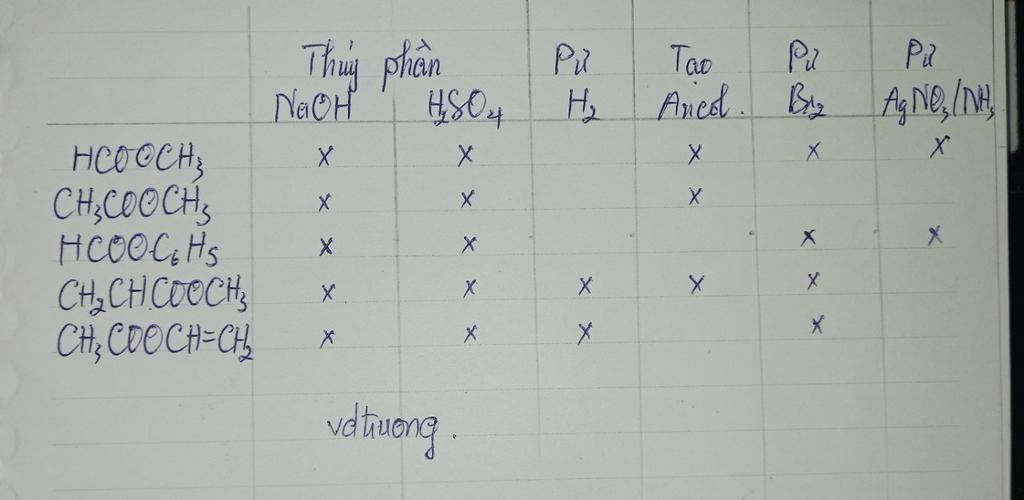 Thủy phân Pứ Tạo Pứ Pứ
NaOH H₂SO₄ H₂ Ancol. Br₂ AgNO₃/NH₃
HCOOCH₃ x x x x x
CH₃COOCH₃ x x x
HCOOC₆H₅ x x x x
CH₂CHCOOCH₃ x x x x x
CH₃COOCH=CH₂ x x x x
vdtruong.